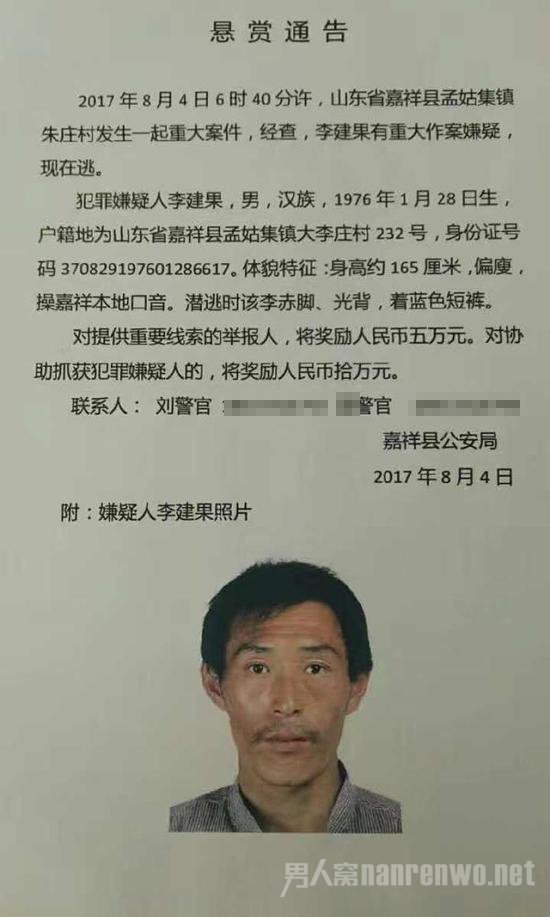 悬赏通告
2017年8月4日6时40分许，山东省嘉祥县孟姑集镇
朱庄村发生一起重大案件，经查，李建果有重大作案嫌疑，
现在逃。
犯罪嫌疑人李建果，男，汉族，1976年1月28日生，
户籍地为山东省嘉祥县孟姑集镇大李庄村232号，身份证号
码370829197601286617。体貌特征：身高约165厘米，偏廋，
操嘉祥本地口音。潜逃时该李赤脚、光背，着蓝色短裤。
对提供重要线索的举报人，将奖励人民币五万元。对协
助抓获犯罪嫌疑人的，将奖励人民币拾万元。
联系人： 刘警官 警官
嘉祥县公安局
2017年8月4日
附：嫌疑人李建果照片
男人窝nanrenwo.net